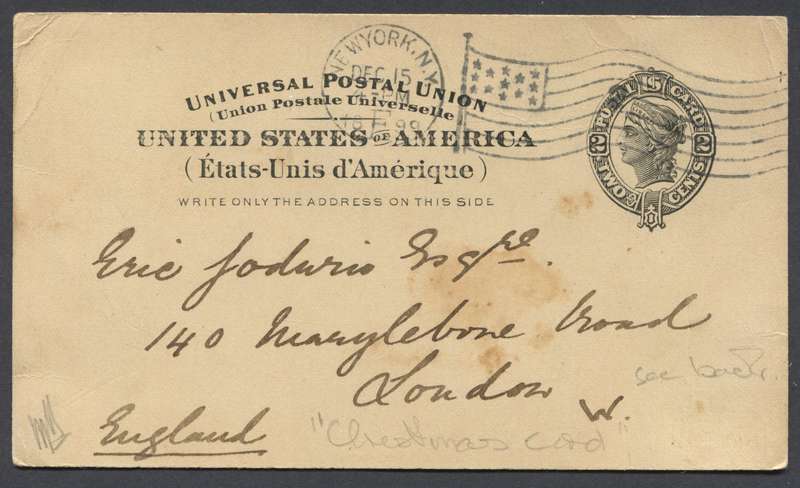 NEW YORK, N.Y.
DEC 15
PM
99
UNIVERSAL POSTAL UNION
(Union Postale Universelle)
UNITED STATES OF AMERICA
(États-Unis d'Amérique)
WRITE ONLY THE ADDRESS ON THIS SIDE
POSTAL CARD
2 2
TWO CENTS
Eric Esqre.
140 Marylebone Road
London
W.
England
see back.
"Christmas card"